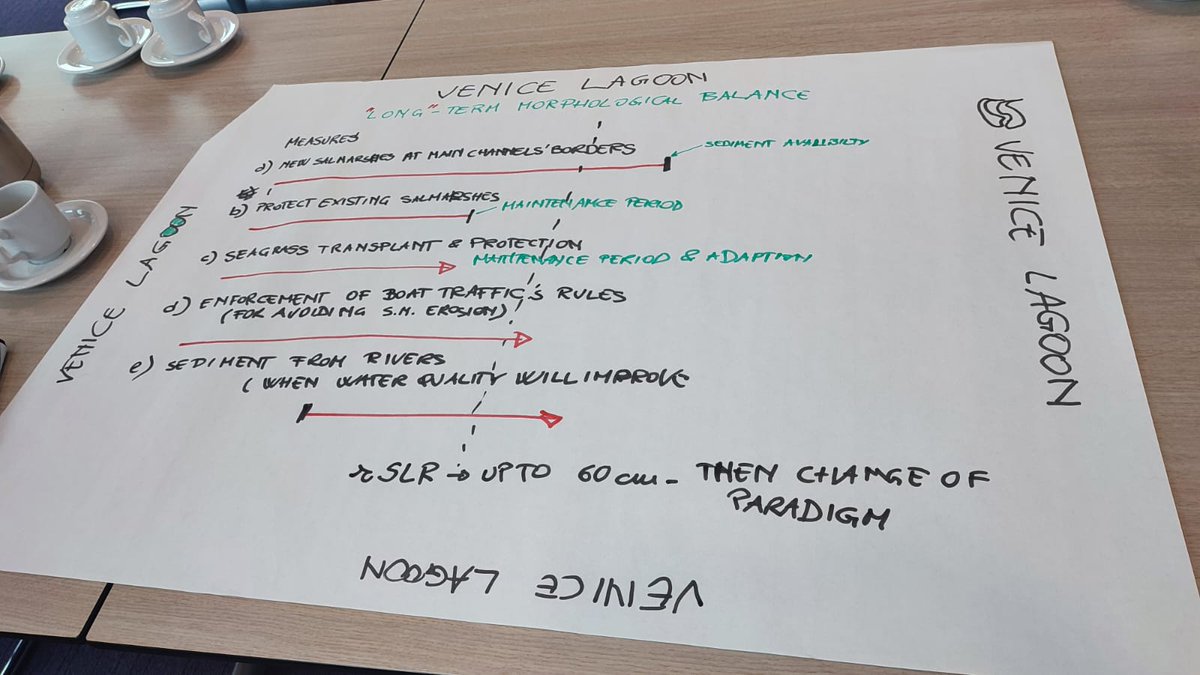 VENICE LAGOON
"LONG"-TERM MORPHOLOGICAL BALANCE
MEASURES
a) NEW SALMARSHES AT MAIN CHANNELS' BORDERS
SEDIMENT AVAILIBILTY
b) PROTECT EXISTING SALMARSHES
MAINTENANCE PERIOD
c) SEAGRASS TRANSPLANT & PROTECTION
MAINTENANCE PERIOD & ADAPTION
d) ENFORCEMENT OF BOAT TRAFFIC'S RULES
(FOR AVOIDING S.M. EROSION)
e) SEDIMENT FROM RIVERS
(WHEN WATER QUALITY WILL IMPROVE
rSLR → UP TO 60 cm - THEN CHANGE OF
PARADIGM
VENICE LAGOON
VENICE LAGOON
VENICE LAGOON